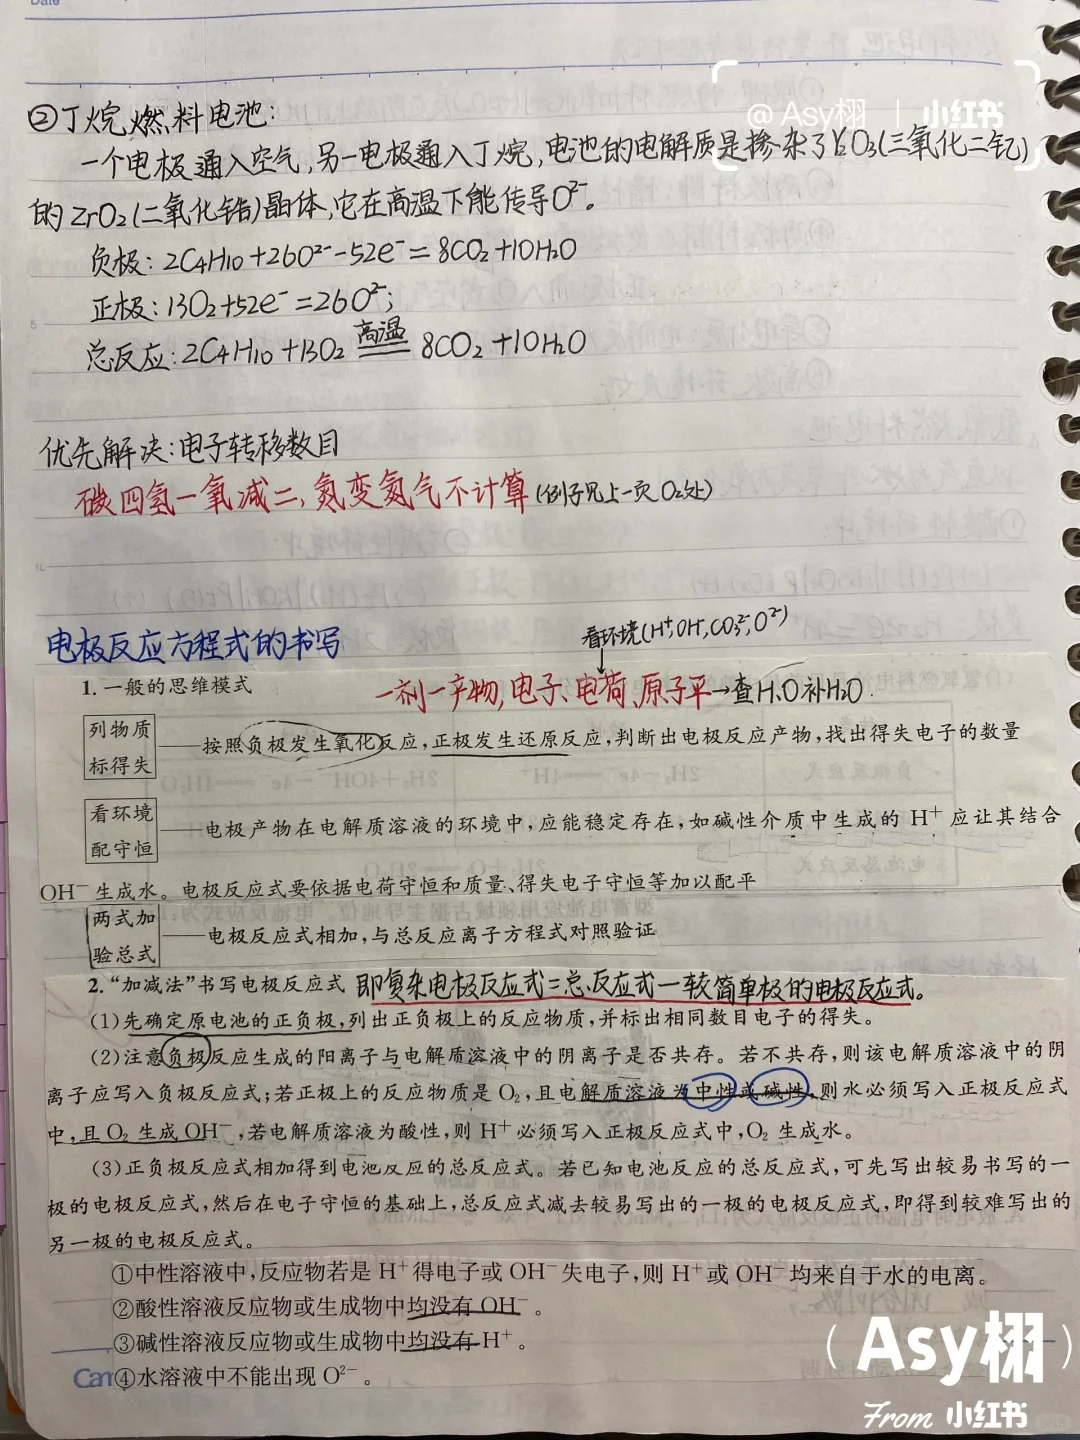 Date
@Asy栩 | 小红书
②丁烷燃料电池:
一个电极通入空气,另一电极通入丁烷,电池的电解质是掺杂了Y₂O₃(三氧化二钇)
的ZrO₂(二氧化锆)晶体,它在高温下能传导O²⁻。
负极:2C₄H₁₀+26O²⁻-52e⁻=8CO₂+10H₂O
正极:13O₂+52e⁻=26O²⁻;
总反应:2C₄H₁₀+13O₂ 高温 8CO₂+10H₂O
优先解决:电子转移数目
碳四氢一氧减二,氮变氮气不计算(例子见上一页O₂处)
看环境(H⁺,OH⁻,CO₃²⁻,O²⁻)
电极反应方程式的书写
1.一般的思维模式 一剂一产物,电子、电荷、原子平→查H、O补H₂O.
列物质
标得失
——按照负极发生氧化反应,正极发生还原反应,判断出电极反应产物,找出得失电子的数量
看环境
配守恒
——电极产物在电解质溶液的环境中,应能稳定存在,如碱性介质中生成的 H⁺ 应让其结合
OH⁻ 生成水。电极反应式要依据电荷守恒和质量、得失电子守恒等加以配平
两式加
验总式
——电极反应式相加,与总反应离子方程式对照验证
2.“加减法”书写电极反应式 即复杂电极反应式=总反应式-较简单极的电极反应式。
(1)先确定原电池的正负极,列出正负极上的反应物质,并标出相同数目电子的得失。
(2)注意负极反应生成的阳离子与电解质溶液中的阴离子是否共存。若不共存,则该电解质溶液中的阴
离子应写入负极反应式;若正极上的反应物质是 O₂,且电解质溶液为中性或碱性,则水必须写入正极反应式
中,且 O₂ 生成 OH⁻,若电解质溶液为酸性,则 H⁺ 必须写入正极反应式中,O₂ 生成水。
(3)正负极反应式相加得到电池反应的总反应式。若已知电池反应的总反应式,可先写出较易书写的一
极的电极反应式,然后在电子守恒的基础上,总反应式减去较易写出的一极的电极反应式,即得到较难写出的
另一极的电极反应式。
①中性溶液中,反应物若是 H⁺ 得电子或 OH⁻ 失电子,则 H⁺ 或 OH⁻ 均来自于水的电离。
②酸性溶液反应物或生成物中均没有 OH⁻ 。
③碱性溶液反应物或生成物中均没有 H⁺ 。
④水溶液中不能出现 O²⁻ 。
(Asy栩)
From 小红书